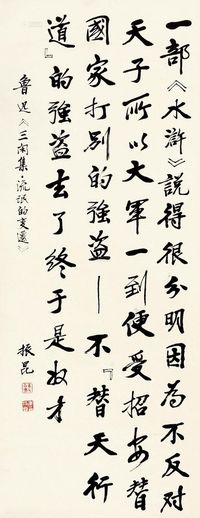 一部《水滸》說得很分明因為不反對
天子所以大軍一到便受招安替
國家打別的強盜—不『替天行
道』的強盜去了終于是奴才
魯迅《三閑集·流氓的变遷》
振昆